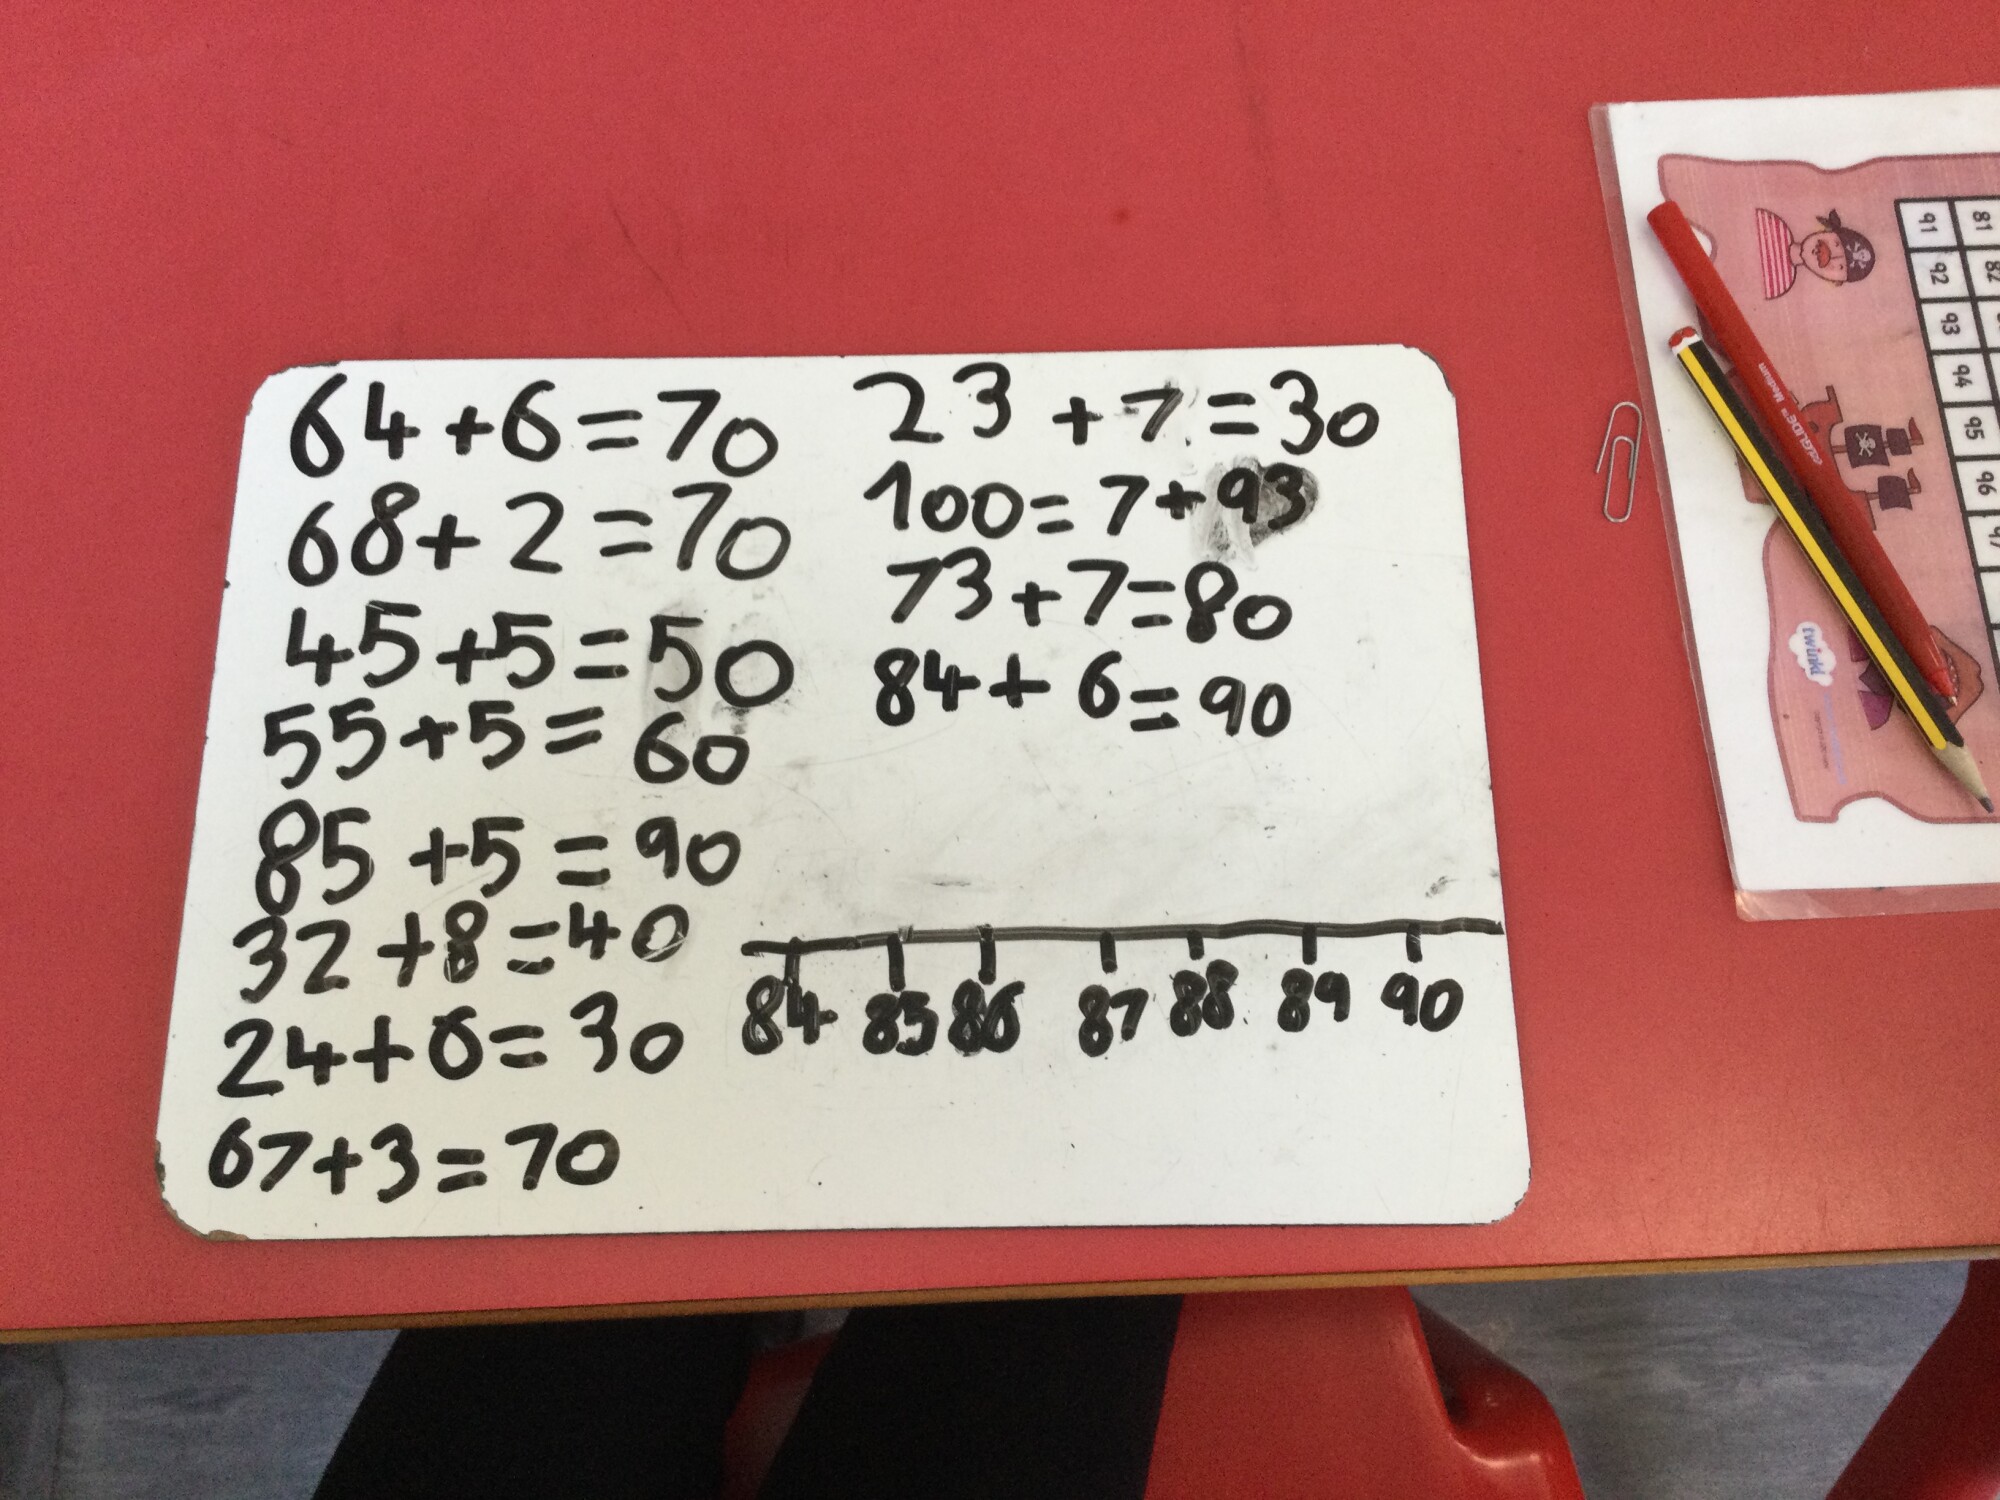 64+6=70
68+2=70
45+5=50
55+5=60
85+5=90
32+8=40
24+6=30
67+3=70
23+7=30
100=7+93
73+7=80
84+6=90
84 85 86 87 88 89 90
81 82
91 92 93 94 95 96 97
eGLIDE™ Medium
twinkl